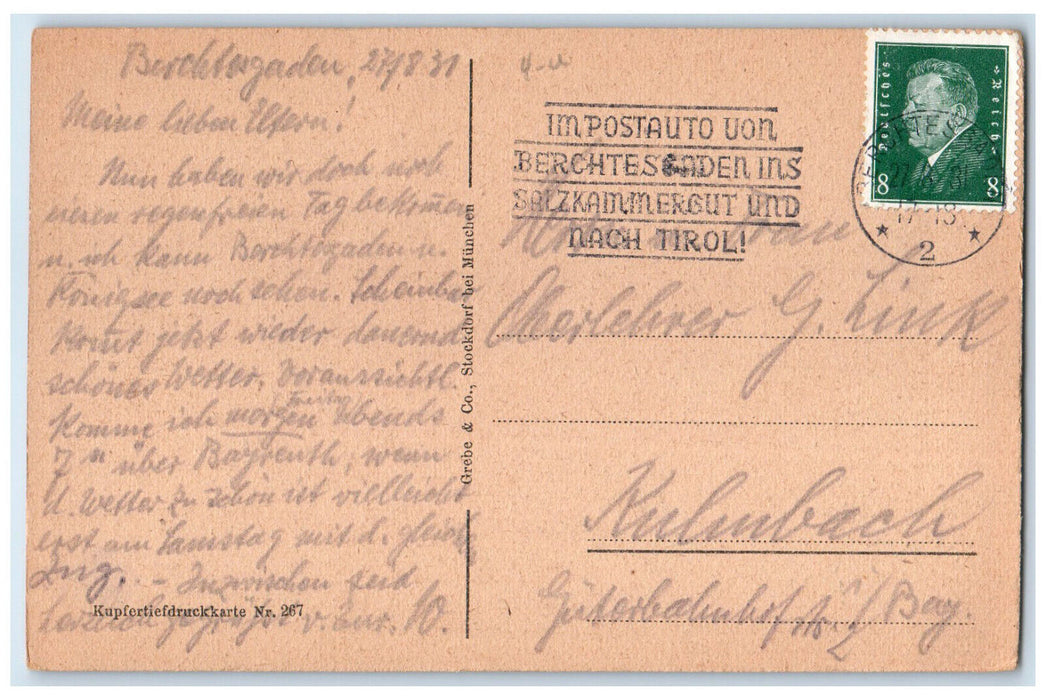 Berchtesgaden, 27/8 31
Meine lieben Eltern!
Nun haben wir doch noch
einen regenfreien Tag bekommen
u. ich kann Berchtesgaden u.
Königsee noch sehen. Scheinbar
kommt jetzt wieder dauernd
schönes Wetter. Voraussichtl.
komme ich morgen abends
7 über Bayreuth, wenn
d. Wetter zu schön ist vielleicht
erst am Samstag mit d. gleich.
Zug. - Inzwischen seid
herzlich gegrüßt v. eur. O.
Kupfertiefdruckkarte Nr. 267
Grebe & Co., Stockdorf bei München
IM POSTAUTO VON
BERCHTESGADEN INS
SALZKAMMERGUT UND
NACH TIROL!
Deutsches Reich
8 8
BERCHTESGADEN
27.8.31
17-18
* 2 *
Herrn u. Frau
Oberlehrer G. Luck
Kulmbach
Güterbahnhofstr. 2 /Bay